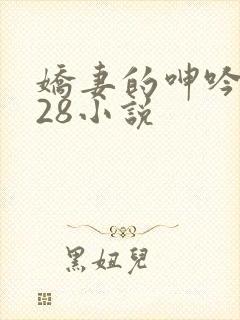 嬌妻的呻吟
28小說
黑妞兒